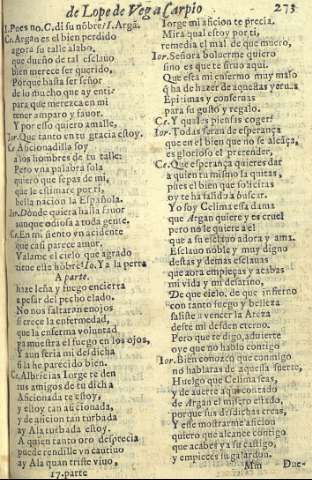 de Lope de Vega Carpio 273
I. Pues no. C. di su nõbre I. Argã.
Ce. Argan es el bien perdido
agora su talle alabo,
que dueño de tal esclauo
bien merece ser querido,
Porque hasta ser señor
de lo mucho que ay entiẽ
para que merezca en mi
tener amparo y fauor.
Y por esso quiero amalle,
Ior. Que tanto en tu gracia estoy.
Ce Aficionadilla soy
a los hombres de tu talle:
Pero vna palabra sola
quiero que sepas de mi,
que le estimare por ti,
bella nacion la Española.
Ior. Donde quiera halla fauor
aunque odiosa a toda gente
Ce. En mi siento vn acidente
que casi parece amor.
Valame el cielo que agrado
tiene este hõbre! Io. Ya la perra
A parte.
haze leña y fuego encierra
a pesar del pecho elado.
No nos faltaran enojos
si crece la enfermedad,
que la enferma voluntad
ya muestra el fuego en los ojos,
Y aun seria mi desdicha
si la he parecido bien.
Ce. Albricias Iorge te den
tus amigos de tu dicha
Aficionada te estoy,
y estoy tan aficionada,
y de aficion tan turbada
ay Ala turbada estoy.
A quien tanto oro desprecia
puede rendille vn cautiuo
ay Ala quan triste viuo,
17. parte
Iorge mi aficion te precia.
Mira qual estoy por ti,
remedia el mal de que muero,
Ior. Señora boluerme quiero
sino es que te siruas aqui.
Que esta mi enfermo muy malo
q̃ ha de hazer de aquestas yeruas
Epitimas y conseruas
para su gusto y regalo.
Ce. Y quales piensas coger?
Ior. Todas seran de esperança
que en el bien que no se alcãça,
es glorioso el pretender,
Ce. Que esperança quieres dar
a quien tu mismo la quitas,
pues el bien que solicitas
oy te ha salido a buscar.
Yo soy Celima essa dama
que Argan quiere y es cruel
pero no le quiere a el
que a su esclauo adora y ama.
Esclauo noble y muy digno
destas y demas esclauas
que aora empieças y acabas
mi vida y mi desatino,
De que cielo, de que infierno
con tanto fuego y belleza
saliste a vencer la fiereza
deste mi desden eterno.
Pero que te digo, aduierte
oye que no hablo contigo
Ior. Bien conozco que conmigo
no hablaras de aquessa suerte,
Huelgo que Celima seas,
y de auerte aqui contado
de Argan el misero estado,
porque sus desdichas creas,
Y esse mostrarme aficion
quiero que alcance contigo
que acabes ya su castigo,
y empieces su galardon.
Mm Due-